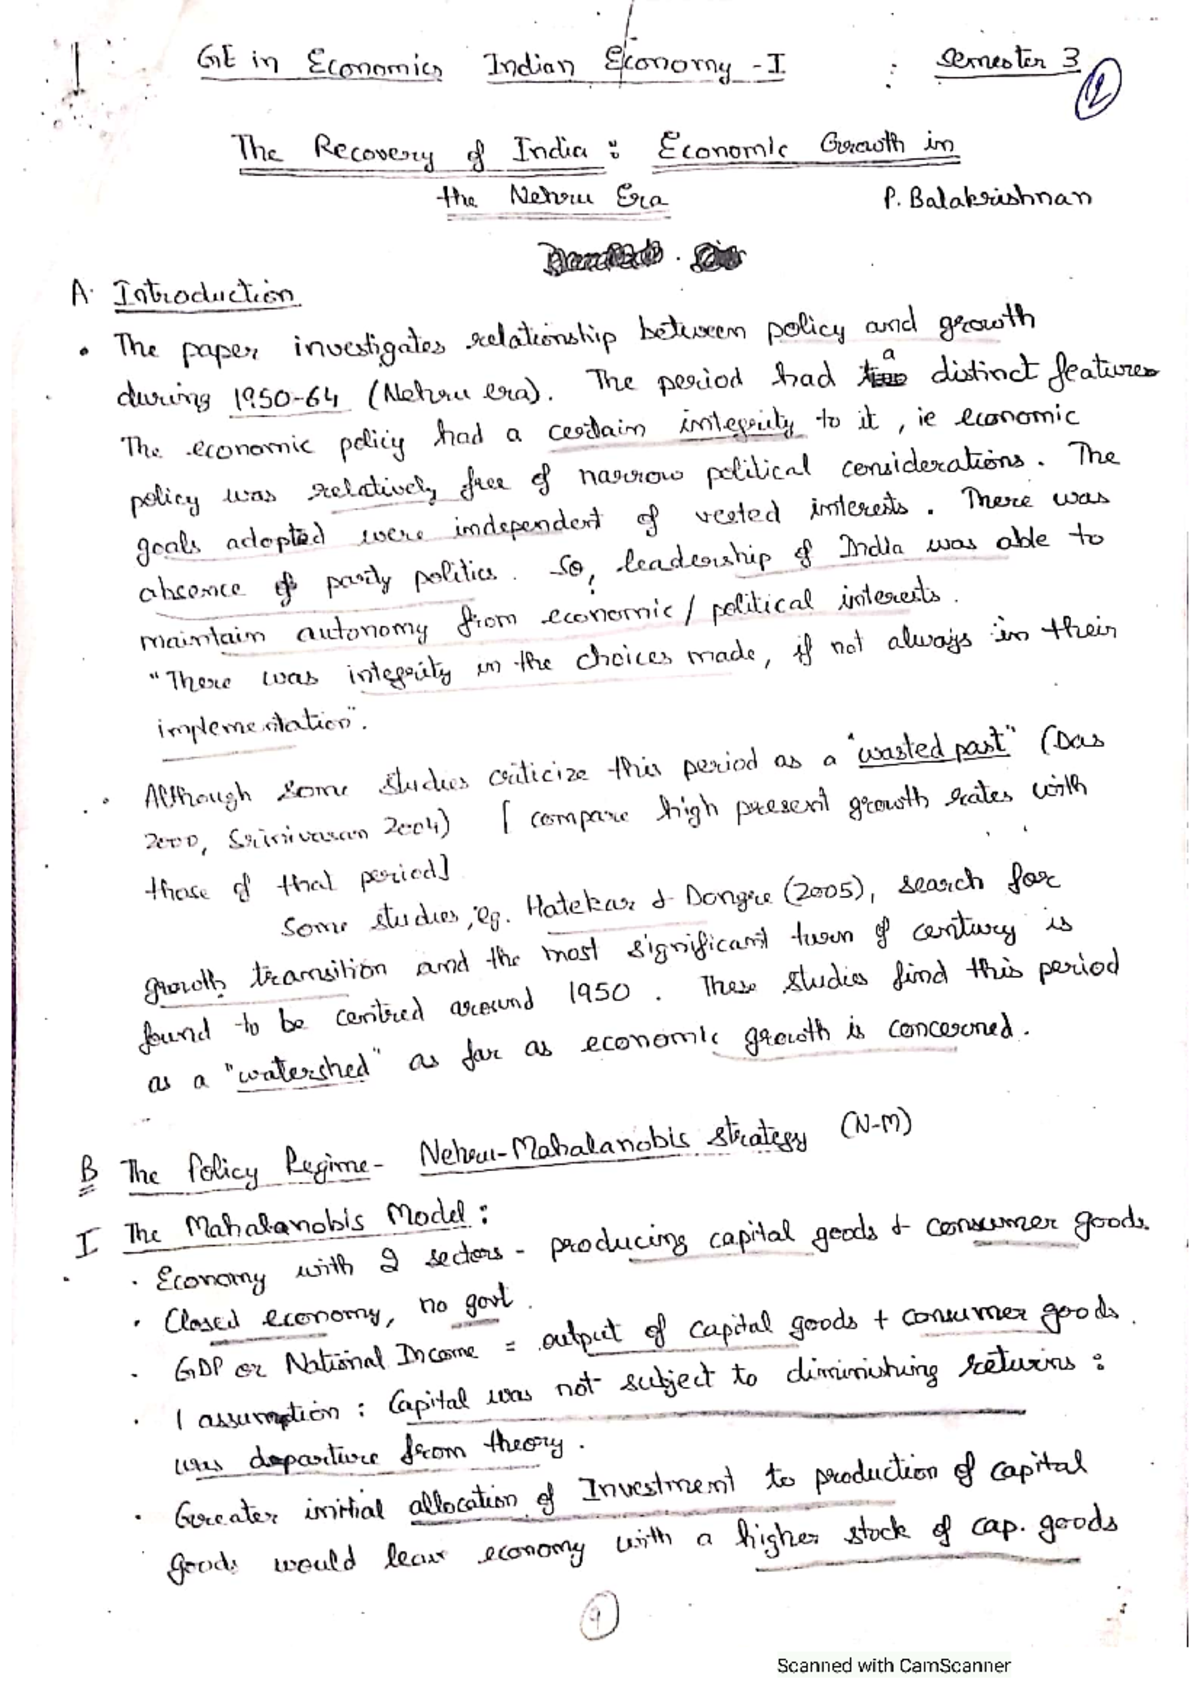 GE in Economics Indian Economy -I : Semester 3
2
The Recovery of India : Economic Growth in
the Nehru Era P. Balakrishnan
A. Introduction
• The paper investigates relationship between policy and growth
during 1950-64 (Nehru era). The period had a distinct features
The economic policy had a certain integrity to it, ie economic
policy was relatively free of narrow political considerations. The
goals adopted were independent of vested interests. There was
absence of party politics. So, leadership of India was able to
maintain autonomy from economic/political interests.
"There was integrity in the choices made, if not always in their
implementation".
• Although some studies criticize this period as a "wasted past" (Das
2000, Srinivasan 2004) [compare high present growth rates with
those of that period]
Some studies, eg. Hatekar & Dongre (2005), search for
growth transition and the most significant turn of century is
found to be centred around 1950. These studies find this period
as a "watershed" as far as economic growth is concerned.
B The Policy Regime- Nehru-Mahalanobis Strategy (N-M)
I The Mahalanobis Model:
• Economy with 2 sectors - producing capital goods & consumer goods.
• Closed economy, no govt.
• GDP or National Income = output of capital goods + consumer goods.
• 1 assumption : Capital was not subject to diminishing returns :
was departure from theory.
• Greater initial allocation of Investment to production of capital
goods would leave economy with a higher stock of cap. goods
9
Scanned with CamScanner